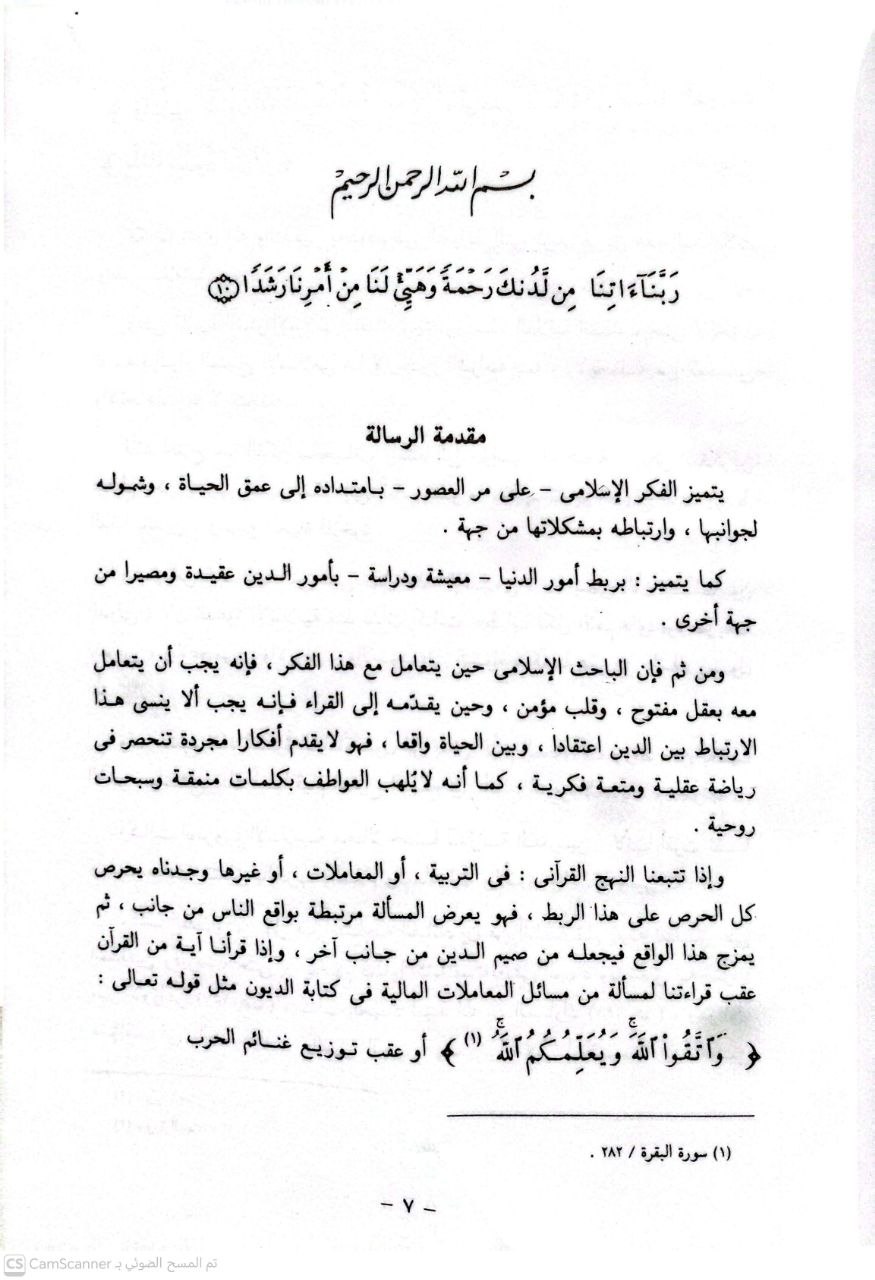 بسم الله الرحمن الرحيم
رَبَّنَآ ءَاتِنَا مِن لَّدُنكَ رَحْمَةً وَهَيِّئْ لَنَا مِنْ أَمْرِنَا رَشَدًا ١٠
مقدمة الرسالة
يتميز الفكر الإسلامى – على مر العصور – بامتداده إلى عمق الحياة ، وشموله
لجوانبها ، وارتباطه بمشكلاتها من جهة .
كما يتميز : بربط أمور الدنيا – معيشة ودراسة – بأمور الدين عقيدة ومصيرا من
جهة أخرى .
ومن ثم فإن الباحث الإسلامى حين يتعامل مع هذا الفكر ، فإنه يجب أن يتعامل
معه بعقل مفتوح ، وقلب مؤمن ، وحين يقدّمه إلى القراء فإنه يجب ألا ينسى هذا
الارتباط بين الدين اعتقادا ، وبين الحياة واقعا ، فهو لا يقدم أفكارا مجردة تنحصر فى
رياضة عقلية ومتعة فكرية ، كما أنه لا يُلهب العواطف بكلمات منمقة وسبحات
روحية .
وإذا تتبعنا النهج القرآنى : فى التربية ، أو المعاملات ، أو غيرها وجدناه يحرص
كل الحرص على هذا الربط ، فهو يعرض المسألة مرتبطة بواقع الناس من جانب ، ثم
يمزج هذا الواقع فيجعله من صميم الدين من جانب آخر ، وإذا قرأنا آية من القرآن
عقب قراءتنا لمسألة من مسائل المعاملات المالية فى كتابة الديون مثل قوله تعالى :
﴿ وَٱتَّقُواْ ٱللَّهَۖ وَيُعَلِّمُكُمُ ٱللَّهُۗ (١) ﴾ أو عقب توزيع غنائم الحرب
(١) سورة البقرة / ٢٨٢ .
– ٧ –
CS CamScanner تم المسح الضوئي بـ